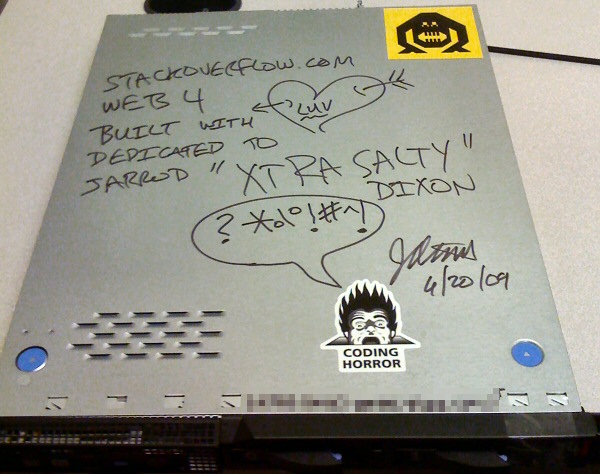 STACKOVERFLOW.COM
WEB 4
BUILT WITH LUV
DEDICATED TO
JARROD "XTRA SALTY"
DIXON
6/20/09
CODING
HORROR